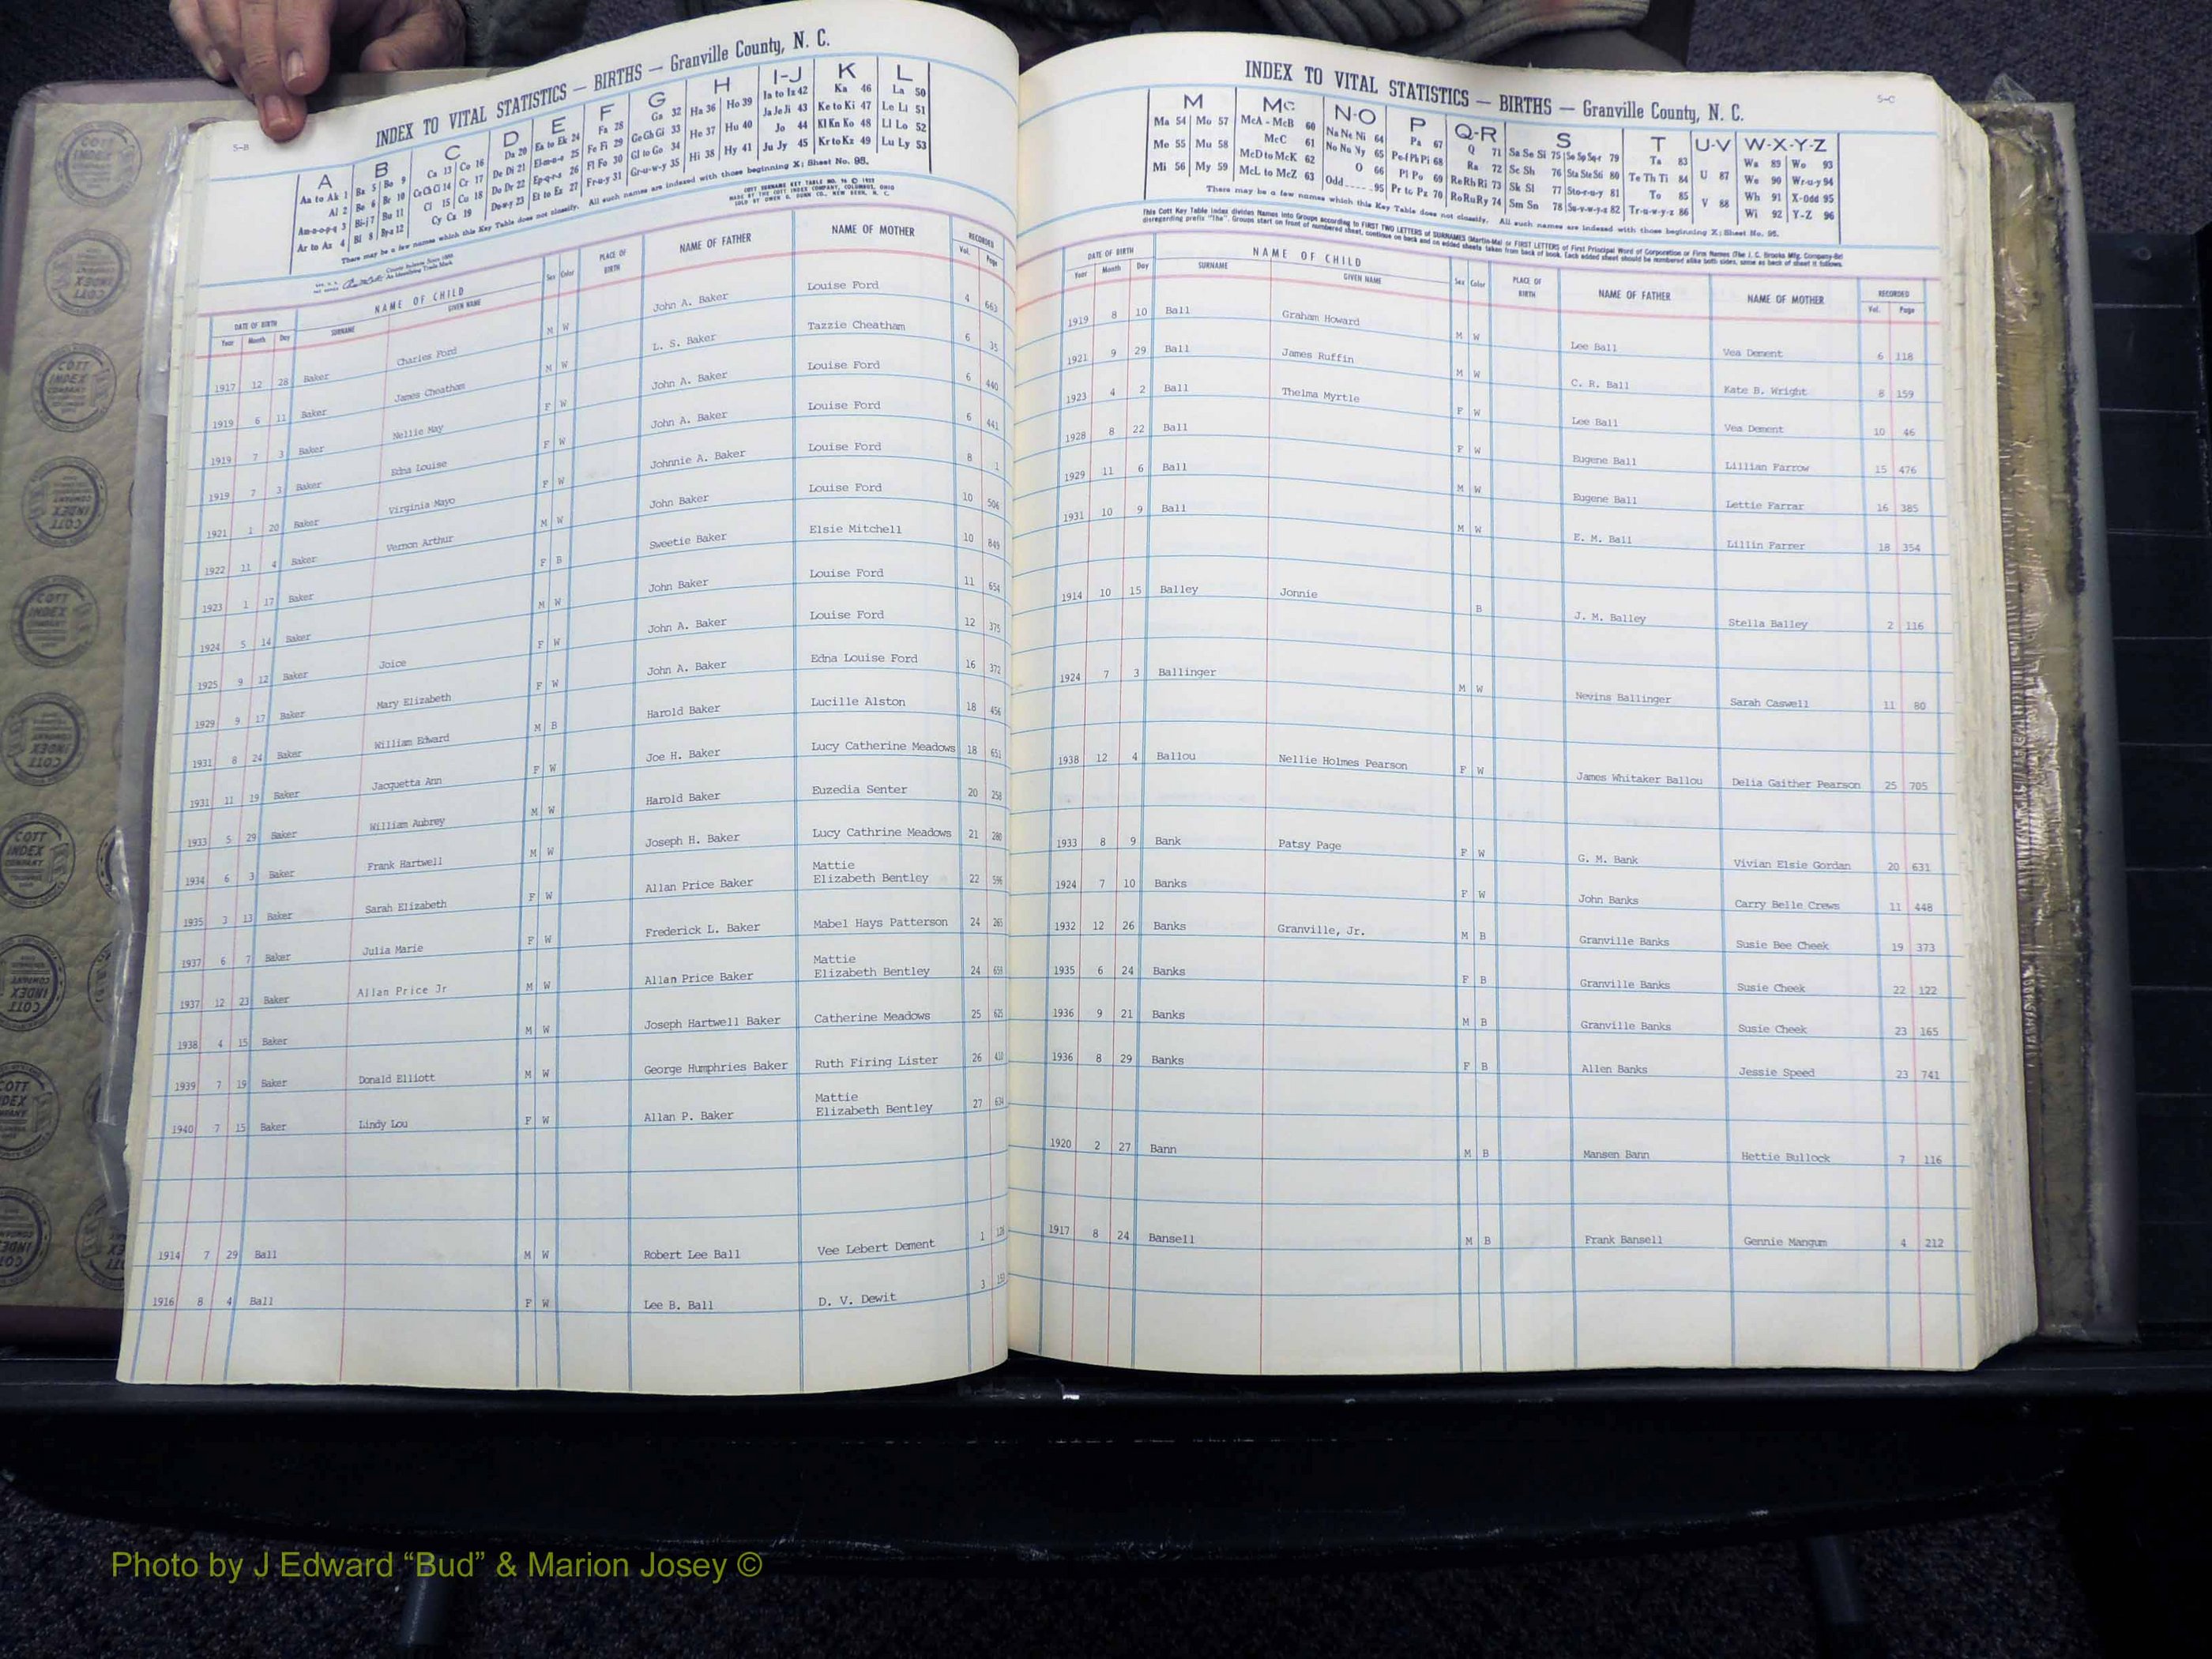 5-B
INDEX TO VITAL STATISTICS — BIRTHS — Granville County, N. C.
A B C D E F G H I-J K L
Aa to Ak 1 Ba 5 Bo 9 Ca 13 Co 16 Da 20 Ea to Ek 24 Fa 28 Ga 32 Ha 36 Ho 39 Ia to Iz 42 Ka 46 La 50
Al 2 Be 6 Br 10 Ce Ch Ci 14 Cr 17 De Di 21 El-m-n-o 25 Fe Fi 29 Ge Gh Gi 33 He 37 Hu 40 Ja Je Ji 43 Ke to Ki 47 Le Li 51
Am-n-o-p-q 3 Bi-j 7 Bu 11 Cl 15 Cu 18 Do Dr 22 Ep-q-r-s 26 Fl Fo 30 Gl to Go 34 Hi 38 Hy 41 Jo 44 Kl Kn Ko 48 Ll Lo 52
Ar to Az 4 Bl 8 By-z 12 Cy Cz 19 Du-w-y 23 Et to Ez 27 Fr-u-y 31 Gr-u-w-y 35 Ju Jy 45 Kr to Kz 49 Lu Ly 53
There may be a few names which this Key Table does not classify. All such names are indexed with those beginning X; Sheet No. 95.
DATE OF BIRTH NAME OF CHILD Sex Color PLACE OF BIRTH NAME OF FATHER NAME OF MOTHER RECORDED
Year Month Day SURNAME GIVEN NAME Vol. Page
1917 12 28 Baker Charles Ford M W John A. Baker Louise Ford 4 663
1919 6 11 Baker James Cheatham M W L. S. Baker Tazzie Cheatham 6 35
1919 7 3 Baker Nellie May F W John A. Baker Louise Ford 6 440
1919 7 3 Baker Edna Louise F W John A. Baker Louise Ford 6 441
1921 1 20 Baker Virginia Mayo F W Johnnie A. Baker Louise Ford 8 1
1922 11 4 Baker Vernon Arthur M W John Baker Louise Ford 10 506
1923 1 17 Baker F B Sweetie Baker Elsie Mitchell 10 849
1924 5 14 Baker M W John Baker Louise Ford 11 654
1925 9 12 Baker Joice F W John A. Baker Louise Ford 12 375
1929 9 17 Baker Mary Elizabeth F W John A. Baker Edna Louise Ford 16 372
1931 8 24 Baker William Edward M B Harold Baker Lucille Alston 18 456
1931 11 19 Baker Jacquetta Ann F W Joe H. Baker Lucy Catherine Meadows 18 651
1933 5 29 Baker William Aubrey M W Harold Baker Euzedia Senter 20 258
1934 6 3 Baker Frank Hartwell M W Joseph H. Baker Lucy Cathrine Meadows 21 280
1935 3 13 Baker Sarah Elizabeth F W Allan Price Baker Mattie Elizabeth Bentley 22 596
1937 6 7 Baker Julia Marie F W Frederick L. Baker Mabel Hays Patterson 24 265
1937 12 23 Baker Allan Price Jr M W Allan Price Baker Mattie Elizabeth Bentley 24 659
1938 4 15 Baker M W Joseph Hartwell Baker Catherine Meadows 25 625
1939 7 19 Baker Donald Elliott M W George Humphries Baker Ruth Firing Lister 26
1940 7 15 Baker Lindy Lou F W Allan P. Baker Mattie Elizabeth Bentley 27 634
1914 7 29 Ball M W Robert Lee Ball Vee Lebert Dement 1
1916 8 4 Ball F W Lee B. Ball D. V. Dewit 3
5-C
INDEX TO VITAL STATISTICS — BIRTHS — Granville County, N. C.
M Mc N-O P Q-R S T U-V W-X-Y-Z
Ma 54 Mo 57 McA - McB 60 Na Ne Ni 64 Pa 67 Q 71 Sa Se Si 75 So Sp Sq-r 79 Ta 83 U 87 Wa 89 Wo 93
Me 55 Mu 58 McC 61 No Nu Ny 65 Pe-f Ph Pi 68 Ra 72 Sc Sh 76 Sta Ste Sti 80 Te Th Ti 84 V 88 We 90 Wr-u-y 94
Mi 56 My 59 McD to McK 62 O 66 Pl Po 69 Re Rh Ri 73 Sk Sl 77 Sto-r-u-y 81 To 85 Wh 91 X-Odd 95
McL to McZ 63 Odd 95 Pr to Pz 70 Ro Ru Ry 74 Sm Sn 78 Su-v-w-y-z 82 Tr-u-w-y-z 86 Wi 92 Y-Z 96
There may be a few names which this Key Table does not classify. All such names are indexed with those beginning X; Sheet No. 95.
This Cott Key Table Index divides Names into Groups according to FIRST TWO LETTERS of SURNAMES (Martin-Ma) or FIRST LETTERS of First Principal Word of Corporation or Firm Names (The J. C. Brooks Mfg. Company-Br)
disregarding prefix "The". Groups start on front of numbered sheet, continue on back and on added sheets taken from back of book. Each added sheet should be numbered alike both sides, same as back of sheet it follows.
DATE OF BIRTH NAME OF CHILD Sex Color PLACE OF BIRTH NAME OF FATHER NAME OF MOTHER RECORDED
Year Month Day SURNAME GIVEN NAME Vol. Page
1919 8 10 Ball Graham Howard M W Lee Ball Vea Dement 6 118
1921 9 29 Ball James Ruffin M W C. R. Ball Kate B. Wright 8 159
1923 4 2 Ball Thelma Myrtle F W Lee Ball Vea Dement 10 46
1928 8 22 Ball F W Eugene Ball Lillian Farrow 15 476
1929 11 6 Ball M W Eugene Ball Lettie Farrar 16 385
1931 10 9 Ball M W E. M. Ball Lillin Farrer 18 354
1914 10 15 Balley Jonnie B J. M. Balley Stella Balley 2 116
1924 7 3 Ballinger M W Nevins Ballinger Sarah Caswell 11 80
1938 12 4 Ballou Nellie Holmes Pearson F W James Whitaker Ballou Delia Gaither Pearson 25 705
1933 8 9 Bank Patsy Page F W G. M. Bank Vivian Elsie Gordan 20 631
1924 7 10 Banks F W John Banks Carry Belle Crews 11 448
1932 12 26 Banks Granville, Jr. M B Granville Banks Susie Bee Cheek 19 373
1935 6 24 Banks F B Granville Banks Susie Cheek 22 122
1936 9 21 Banks M B Granville Banks Susie Cheek 23 165
1936 8 29 Banks F B Allen Banks Jessie Speed 23 741
1920 2 27 Bann M B Mansen Bann Hettie Bullock 7 116
1917 8 24 Bansell M B Frank Bansell Gennie Mangum 4 212
Photo by J Edward “Bud” & Marion Josey ©